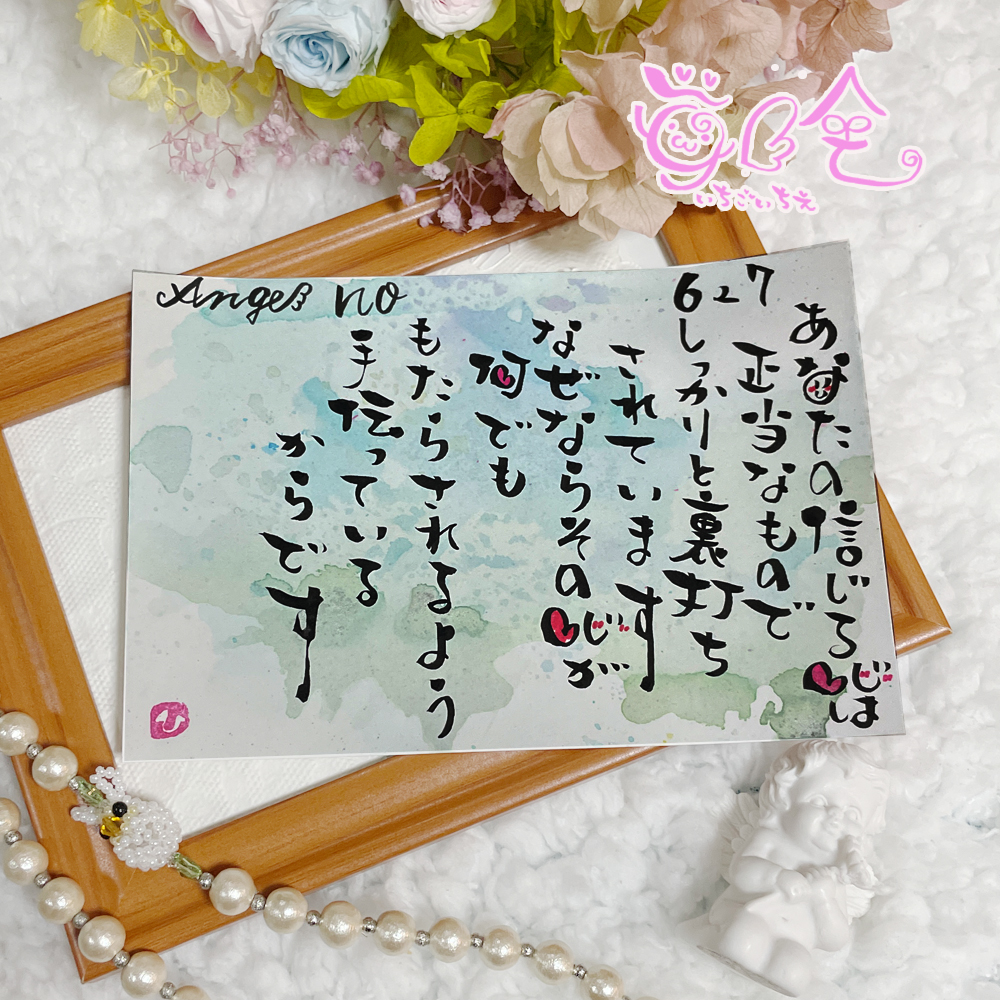 Angel no
627
あなたの信じる心は
正当なもので
しっかりと裏打ち
されています
なぜならその心が
何でも
もたらされるよう
手伝っている
からです
いちごいちえ